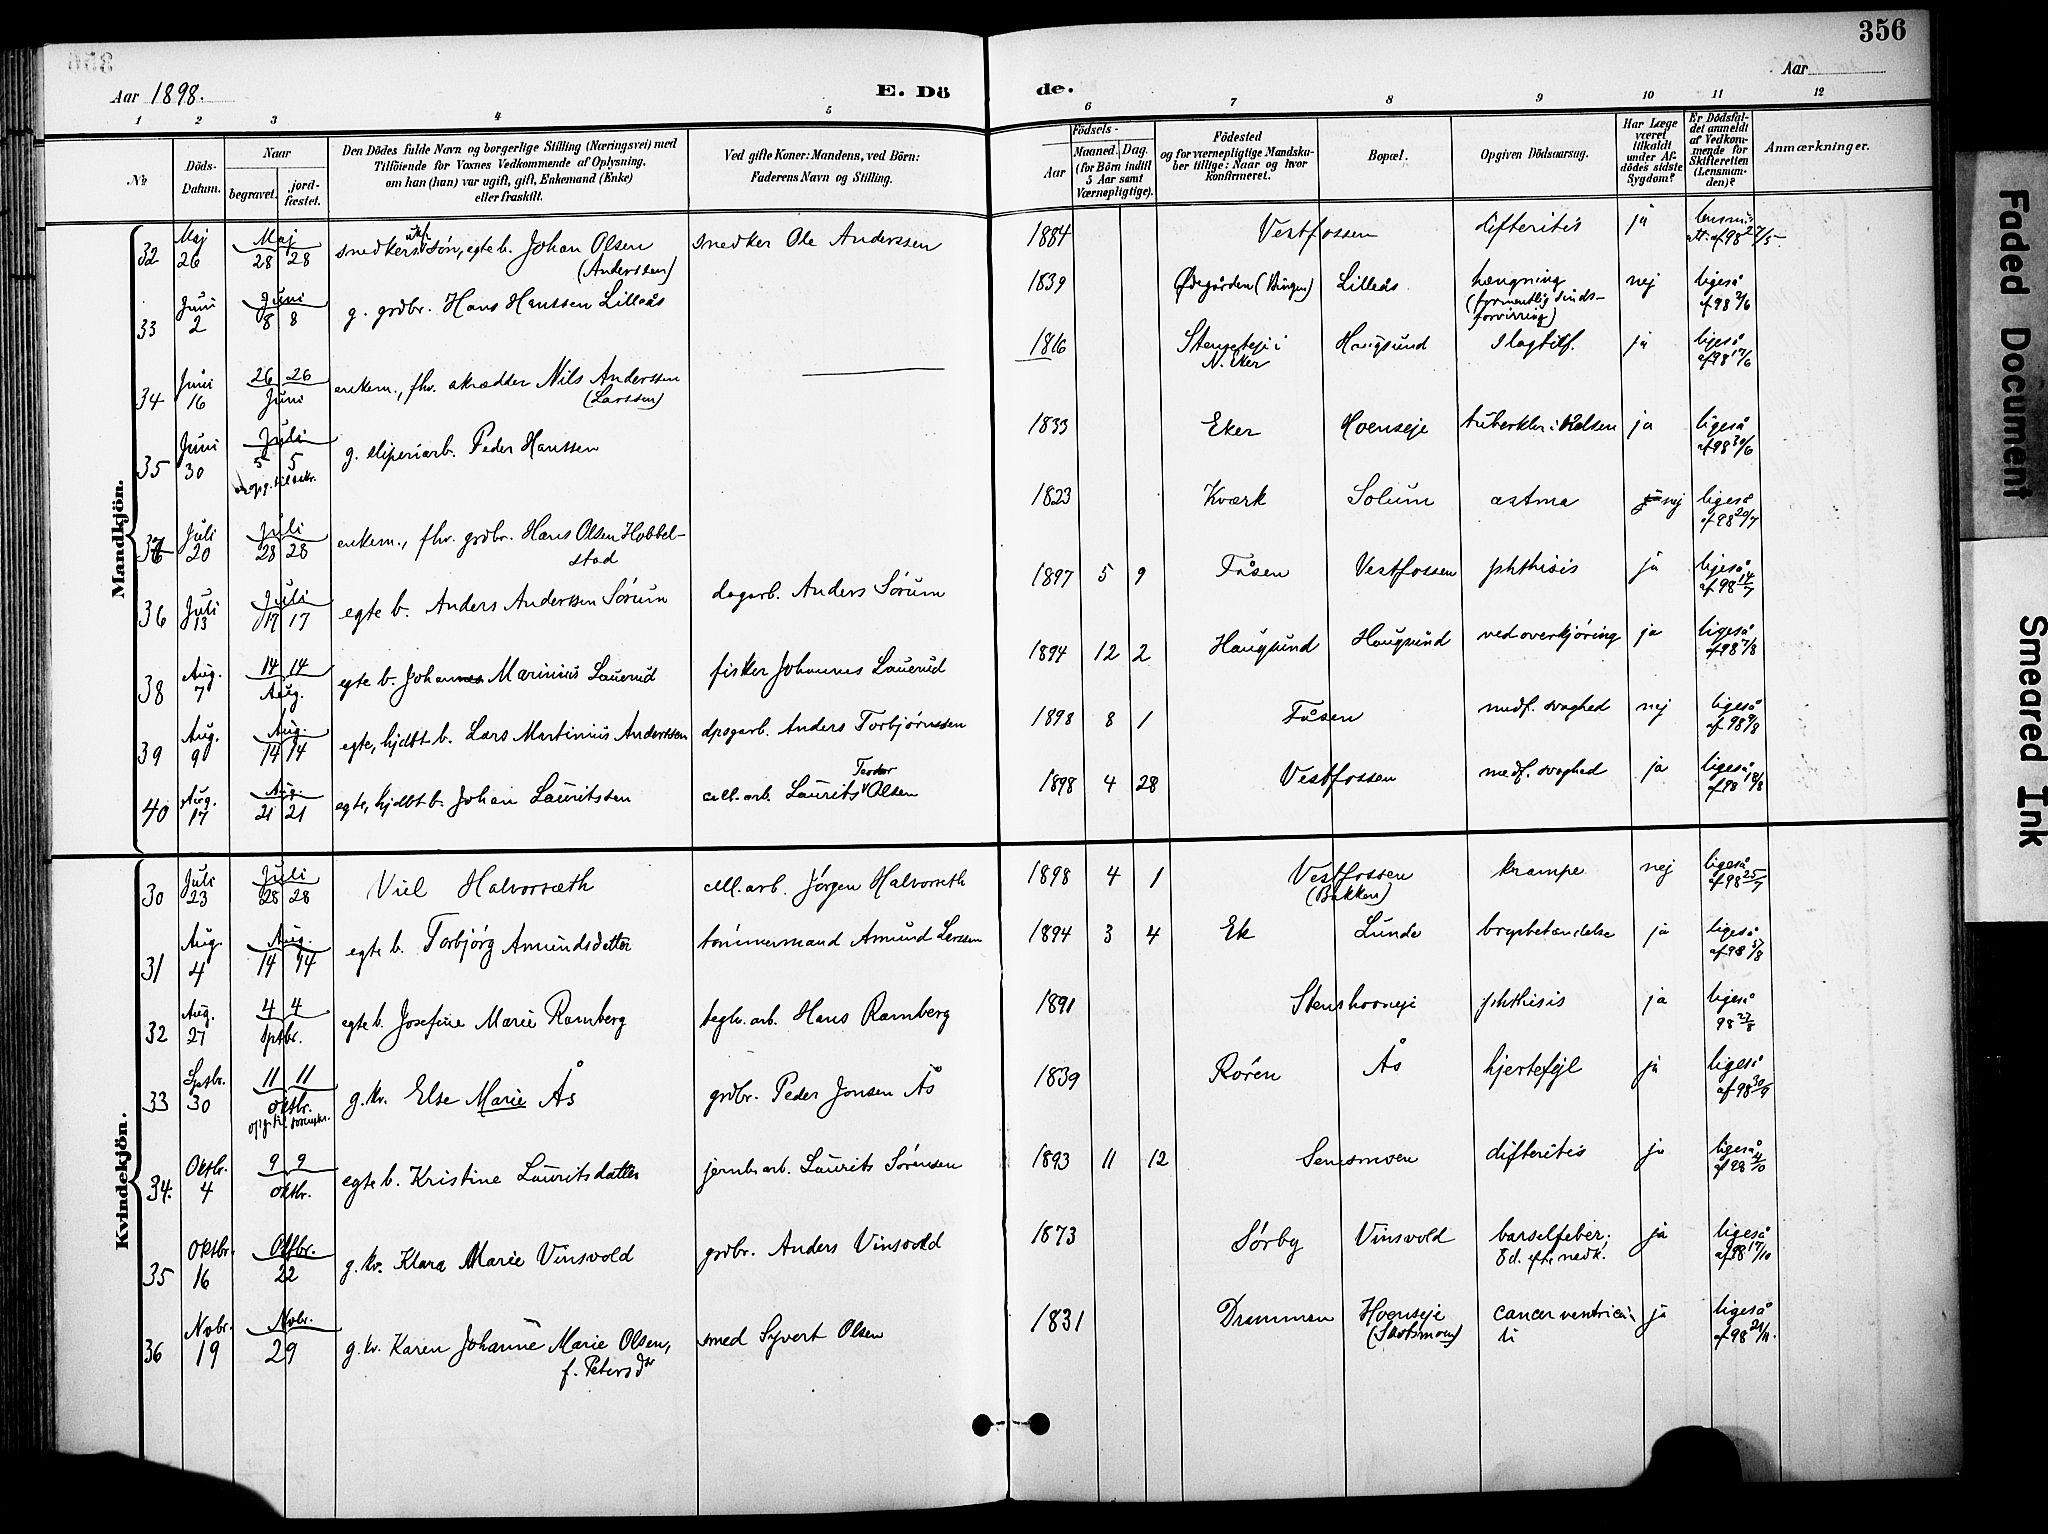 356
Aar 1898.
E. Döde.
Aar
1 2 3 4 5 6 7 8 9 10 11 12
No
Döds-Datum.
Naar
begravet.
jord-fæstet.
Den Dödes fulde Navn og borgerlige Stilling (Næringsvei) med
Tilföiende for Voxnes Vedkommende af Oplysning,
om han (hun) var ugift, gift, Enkemand (Enke)
eller fraskilt.
Ved gifte Koner: Mandens, ved Börn:
Faderens Navn og Stilling.
Födsels-
Aar
Maaned. Dag.
(for Börn indtil
5 Aar samt
Værnepligtige).
Födested
og for værnepligtige Mandska-
ber tillige: Naar og hvor
konfirmeret.
Bopæl.
Opgiven Dödsaarsag.
Har Læge
været
tilkaldt
under Af-
dödes sidste
Sygdom?
Er Dödsfal-
det anmeldt
af Vedkom-
mende for
Skifteretten
(Lensman-
den)?
Anmærkninger.
Mandkjön.
32 Maj 26 Maj 28 28 snedkers søn, egte b. Johan Olsen (Anderssen) snedker Ole Anderssen 1884 Vestfossen difteritis ja lensm. att. af 98 27/5
33 Juni 2 Juni 8 8 g. grdbr. Hans Hanssen Lilleås 1839 Ødegården (Bingen) Lilleås hængning (formentlig sinds-forvirring) nej ligeså af 98 2/6
34 Juni 16 26 26 Juni enkem., fhv. skrædder Nils Anderssen (Larssen) 1816 Stenseteje i N. Eker Haugsund slagtilf. ja ligeså af 98 17/6
35 Juni 30 Juli 5 5 g. sliperiarb. Peder Hanssen 1833 Eker Hoenseje tuberkler i halsen ja ligeså af 98 30/6
37 Juli 20 Juli 28 28 enkem., fhv. grdbr. Hans Olsen Hobbel-stad 1823 Kværk Solum astma nej ligeså af 98 20/7
36 Juli 13 Juli 17 17 egte b. Anders Anderssen Sørum dagarb. Anders Sørum 1897 5 9 Fåsen Vestfossen phthisis ja ligeså af 98 14/7
38 Aug. 7 14 14 Aug. egte b. Johannes Marinius Lauerud fisker Johannes Lauerud 1894 12 2 Haugsund Haugsund ved overkjøring ja ligeså af 98 7/8
39 Aug. 9 Aug. 14 14 egte, hjdbt b. Lars Martinius Anderssen dagarb. Anders Torbjørnssen 1898 8 1 Fåsen medf. svaghed nej ligeså af 98 9/8
40 Aug. 17 Aug. 21 21 egte, hjdbt b. Johan Lauritssen cell.arb. Laurits Teodor Olsen 1898 4 28 Vestfossen medf. svaghed ja ligeså af 98 18/8
Kvindekjön.
30 Juli 23 Juli 28 28 Viel Halvorsæth cell.arb. Jørgen Halvorseth 1898 4 1 Vestfossen (Bakken) krampe nej ligeså af 98 25/7
31 Aug. 4 Aug. 14 14 egte b. Torbjørg Amundsdatter tømmermand Amund Larssen 1894 3 4 Ek Lunde brystbetændelse ja ligeså af 98
32 Aug. 27 4 4 Sptbr. egte b. Josefine Marie Ramberg teglv. arb. Hans Ramberg 1891 Stenshorneje phthisis ja ligeså 98 27/8
33 Sptbr. 30 11 11 oktbr. g. kv. Else Marie Ås grdbr. Peder Jonsen Ås 1839 Røren Ås hjertefejl ja ligeså af 98 30/9
34. Oktbr. 4 9 9 oktbr. egte b. Kristine Lauritsdatter jernb.arb. Laurits Sørensen 1893 11 12 Semsmoen difteritis ja ligeså af 98 4/10
35 Oktbr. 16 Oktbr. 22 g. kv. Klara Marie Vinsvold grdbr. Anders Vinsvold 1873 Sørby Vinsvold barselfeber, 8 d. efter nedk. ja ligeså af 98 17/10
36 Nvbr. 19 Nvbr. 29 g. kv. Karen Johanne Marie Olsen, f. Petersdr smed Syvert Olsen 1831 Drammen Hoenseje (Skotsmoen) cancer ventricu-li ja ligeså af 98 21/11.
Faded Document
Smeared Ink